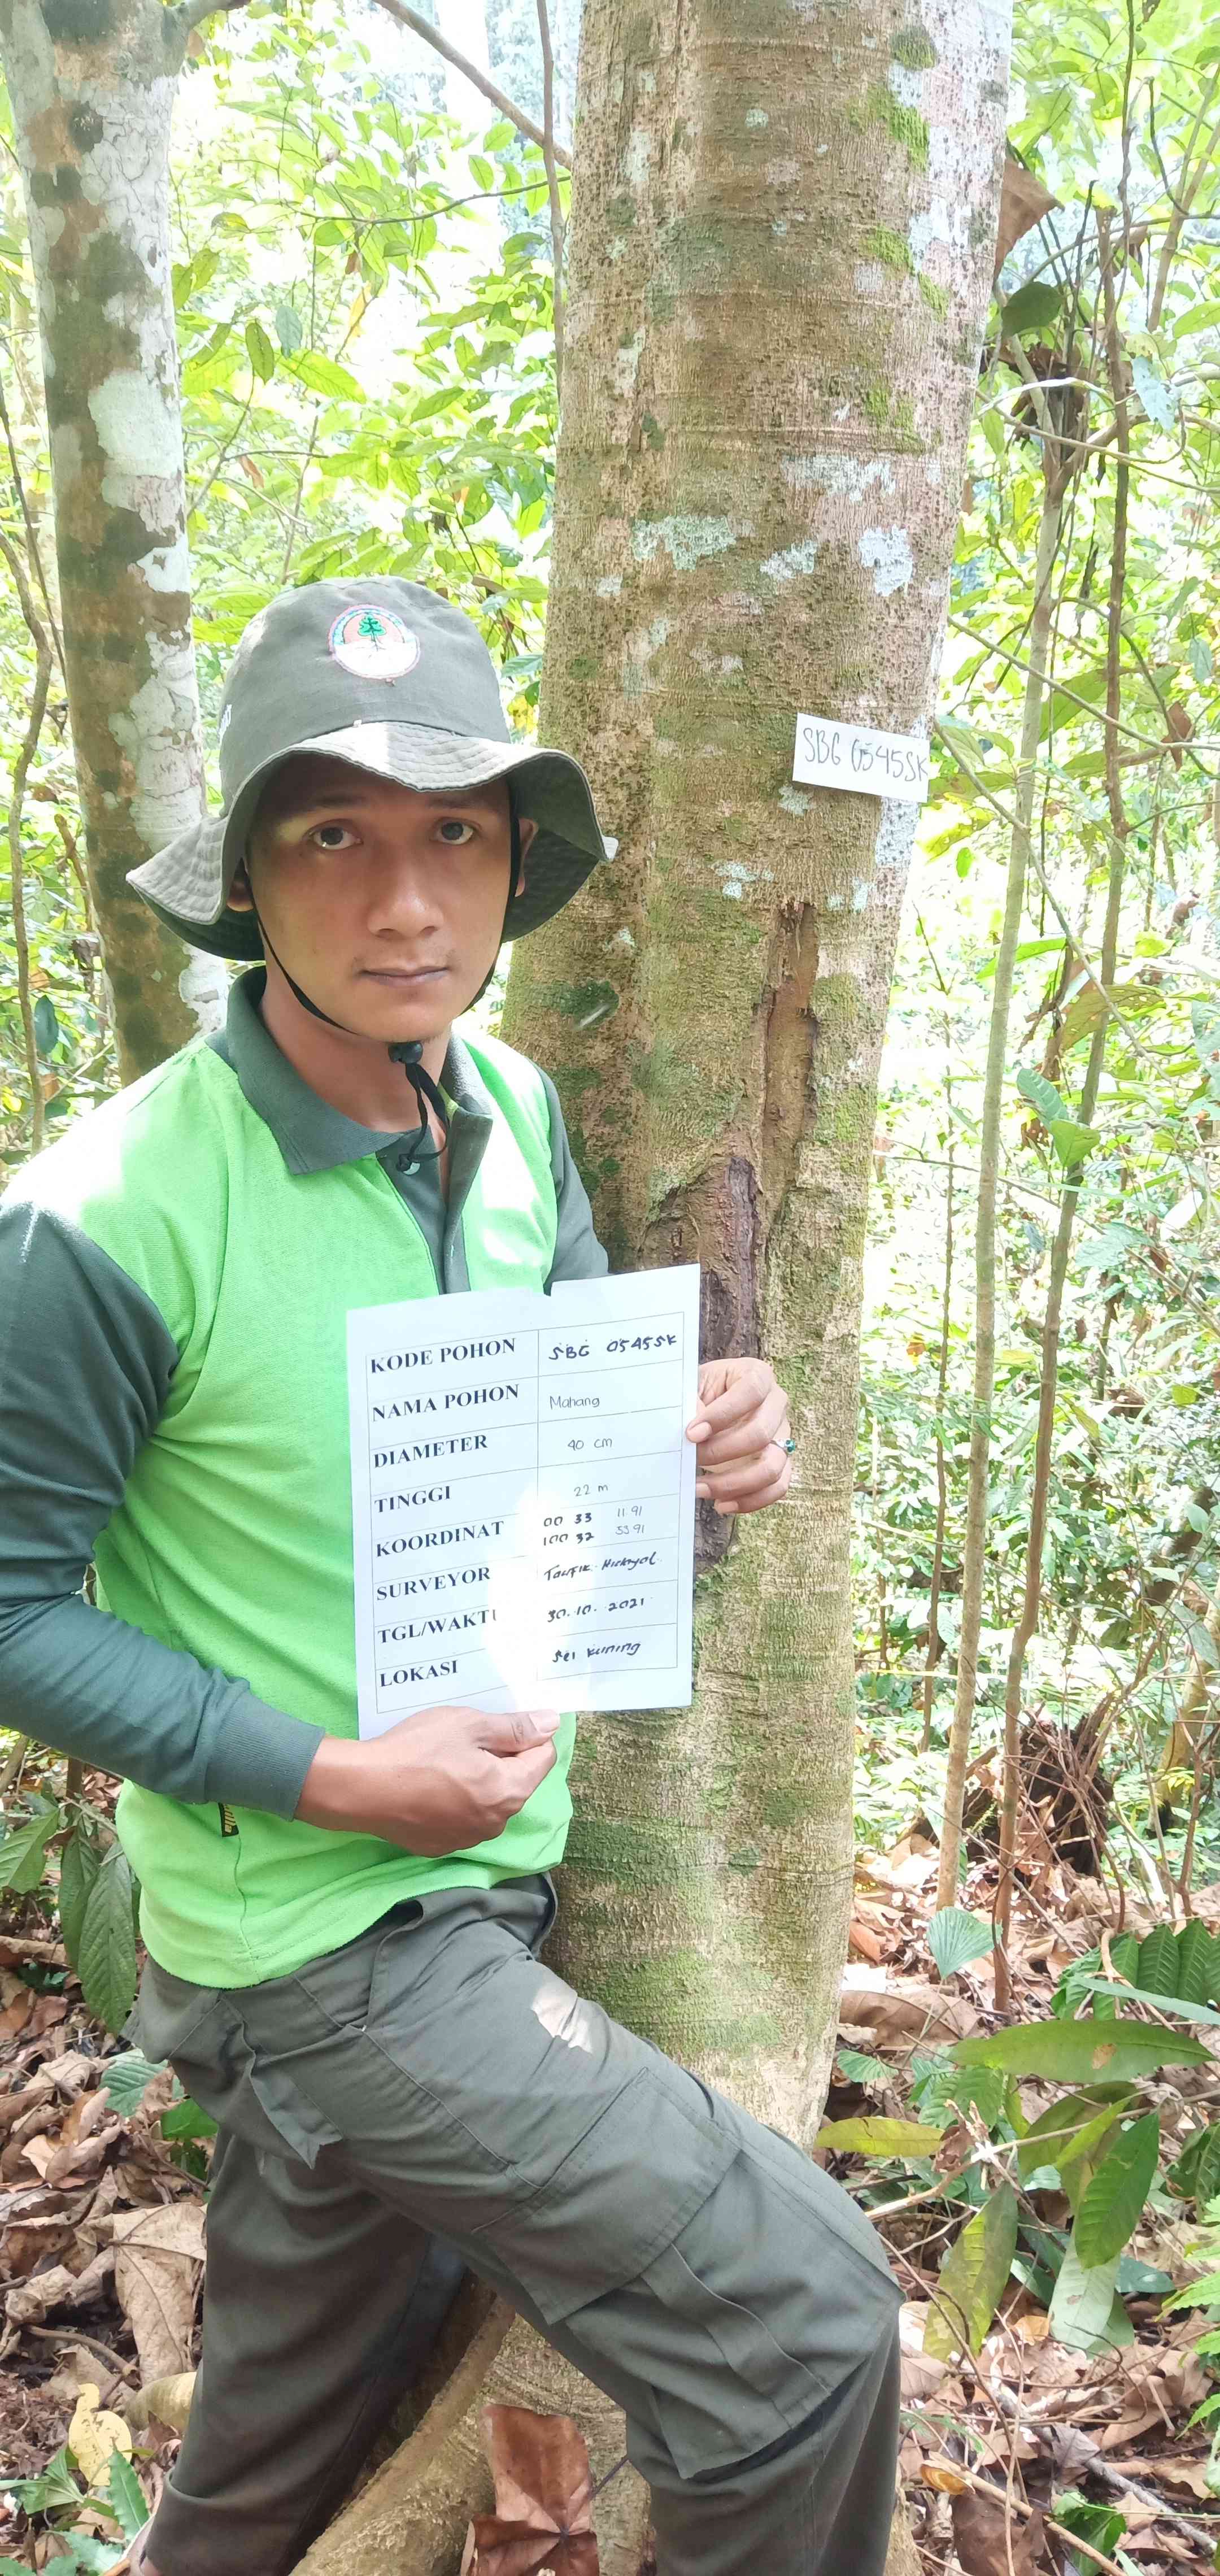 SBG 0545SK
KODE POHON SBG 0545SK
NAMA POHON Mahang
DIAMETER 40 cm
TINGGI 22 m
KOORDINAT 00 33 11.91
100 32 33.91
SURVEYOR Taufik Hidayat
TGL/WAKTU 30.10.2021
LOKASI Sei Kuning